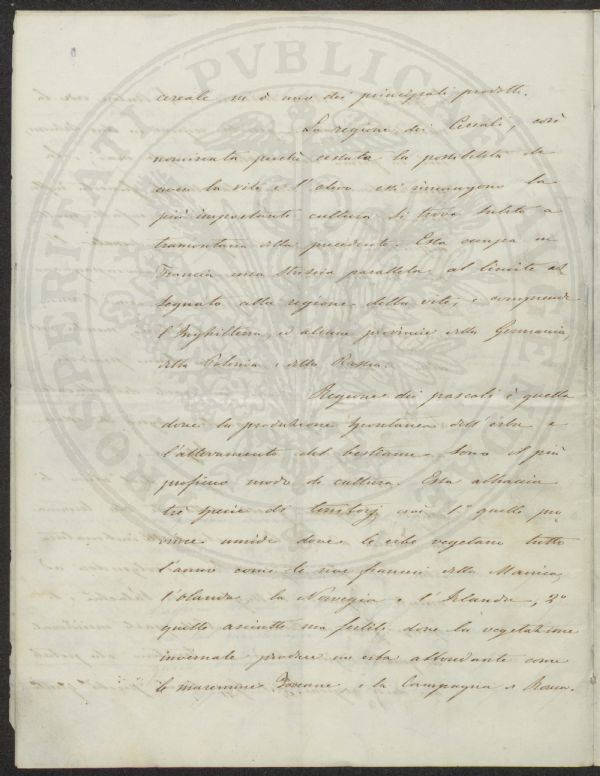 cereale ne è uno dei principali prodotti.
La regione dei Cereali, così
nominata perchè cessata la possibilità di
aver la vite e l'olivo essi rimangono la
più importante cultura si trova subito a
tramontana della precedente. Essa occupa in
Francia una striscia parallela al limite as
segnato alla regione della vite, e comprende
l'Inghilterra, ed alcune provincie della Germania,
della Polonia e della Russia.
Regione dei pascoli è quella
dove la produzione spontanea dell'erba e
l'allevamento del bestiame sono il più
proficuo modo di cultura. Essa abbraccia
tre specie di cioè 1º quelle pro
vincie umide dove le erbe vegetano tutto
l'anno come le rive francesi della Manica,
l'olanda la Norvegia e l'Irlanda, 2º
quelle asciutte ma fertili dove la vegetazione
invernale produce un erba abbondante come
le maremme Toscane e la Campagna di Roma.
PROSPERITATI PVBLICAE AVGENDAE